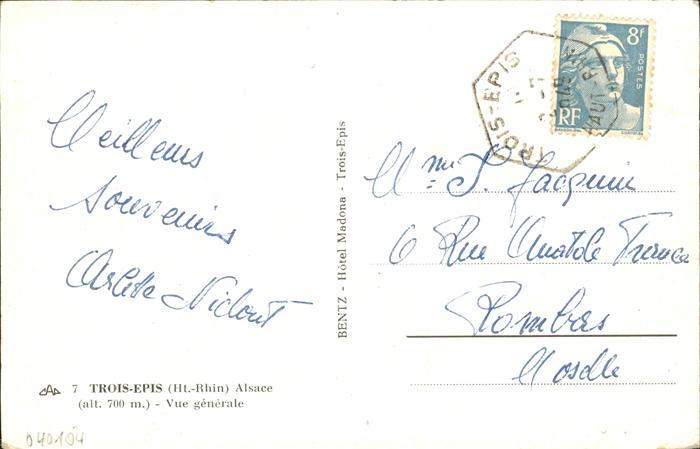 Meilleurs
Souvenirs
Arlette
BENTZ - Hôtel Madona - Trois-Epis
8F
POSTES
RF
TROIS-EPIS
HAUT-RHIN
Mme S. Jacquin
6 Rue Anatole France
Rombas
Moselle
CAP 7 TROIS-EPIS (Ht.-Rhin) Alsace
(alt. 700 m.) - Vue générale
040104